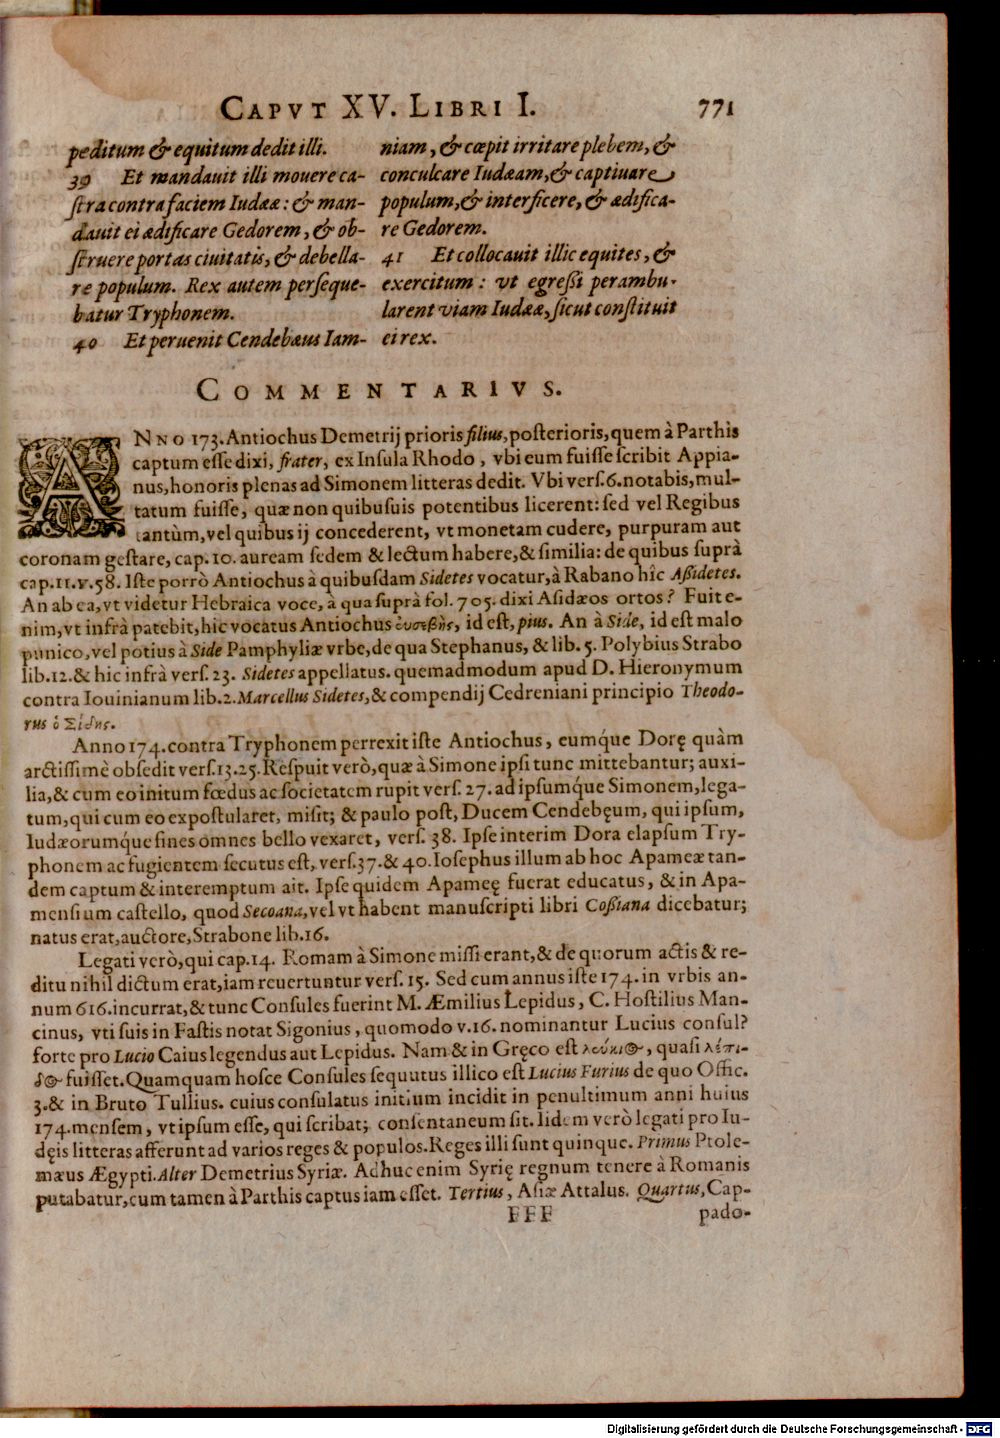 CAPVT XV. LIBRI I. 771
peditum & equitum dedit illi.
39 Et mandauit illi mouere ca-
ſtra contra faciem Iudææ: & man-
dauit ei ædificare Gedorem, & ob-
ſtruere portas ciuitatis, & debella-
re populum. Rex autem perſeque-
batur Tryphonem.
40 Et peruenit Cendebæus Iam-
niam, & cœpit irritare plebem, &
conculcare Iudæam, & captiuare
populum, & interficere, & ædifica-
re Gedorem.
41 Et collocauit illic equites, &
exercitum: vt egreſſi perambu-
larent viam Iudææ, ſicut conſtituit
ei rex.
COMMENTARIVS.
ANNO 173. Antiochus Demetrij prioris filius, poſterioris, quem à Parthis
captum eſſe dixi, frater, ex Inſula Rhodo, vbi eum fuiſſe ſcribit Appia-
nus, honoris plenas ad Simonem litteras dedit. Vbi verſ. 6. notabis, mul-
tatum fuiſſe, quæ non quibuſuis potentibus licerent: ſed vel Regibus
tantùm, vel quibus ij concederent, vt monetam cudere, purpuram aut
coronam geſtare, cap. 10. auream ſedem & lectum habere, & ſimilia: de quibus ſuprà
cap. 11. v. 58. Iſte porrò Antiochus à quibuſdam Sidetes vocatur, à Rabano hîc Aßidetes.
An ab ea, vt videtur Hebraica voce, à qua ſuprà fol. 705. dixi Aſidæos ortos? Fuit e-
nim, vt infrà patebit, hic vocatus Antiochus ἐυσεβὴς, id eſt, pius. An à Side, id eſt malo
punico, vel potius à Side Pamphyliæ vrbe, de qua Stephanus, & lib. 5. Polybius Strabo
lib. 12. & hic infrà verſ. 23. Sidetes appellatus. quemadmodum apud D. Hieronymum
contra Iouinianum lib. 2. Marcellus Sidetes, & compendij Cedreniani principio Theodo-
rus ὁ Σίδης.
Anno 174. contra Tryphonem perrexit iſte Antiochus, eumq́ue Dorę quàm
arctiſſimè obſedit verſ. 13. 25. Reſpuit verò, quæ à Simone ipſi tunc mittebantur; auxi-
lia, & cum eo initum fœdus ac ſocietatem rupit verſ. 27. ad ipſumq́ue Simonem, lega-
tum, qui cum eo expoſtularet, miſit; & paulo poſt, Ducem Cendebęum, qui ipſum,
Iudæorumq́ue fines omnes bello vexaret, verſ. 38. Ipſe interim Dora elapſum Try-
phonem ac fugientem ſecutus eſt, verſ. 37. & 40. Ioſephus illum ab hoc Apameæ tan-
dem captum & interemptum ait. Ipſe quidem Apameę fuerat educatus, & in Apa-
menſium caſtello, quod Secoana, vel vt habent manuſcripti libri Coßiana dicebatur;
natus erat, auctore, Strabone lib. 16.
Legati verò, qui cap. 14. Romam à Simone miſſi erant, & de quorum actis & re-
ditu nihil dictum erat, iam reuertuntur verſ. 15. Sed cum annus iſte 174. in vrbis an-
num 616. incurrat, & tunc Conſules fuerint M. Æmilius Lepidus, C. Hoſtilius Man-
cinus, vti ſuis in Faſtis notat Sigonius, quomodo v. 16. nominantur Lucius conſul?
forte pro Lucio Caius legendus aut Lepidus. Nam & in Gręco eſt λευκιος, quaſi λεπι-
δος fuiſſet. Quamquam hoſce Conſules ſequutus illico eſt Lucius Furius de quo Offic.
3. & in Bruto Tullius. cuius conſulatus initium incidit in penultimum anni huius
174. menſem, vt ipſum eſſe, qui ſcribat; conſentaneum ſit. Iidem verò legati pro Iu-
dęis litteras afferunt ad varios reges & populos. Reges illi ſunt quinque. Primus Ptole-
mæus Ægypti. Alter Demetrius Syriæ. Adhuc enim Syrię regnum tenere à Romanis
putabatur, cum tamen à Parthis captus iam eſſet. Tertius, Aſiæ Attalus. Quartus, Cap-
FFF pado-
Digitalisierung gefördert durch die Deutsche Forschungsgemeinschaft - DFG